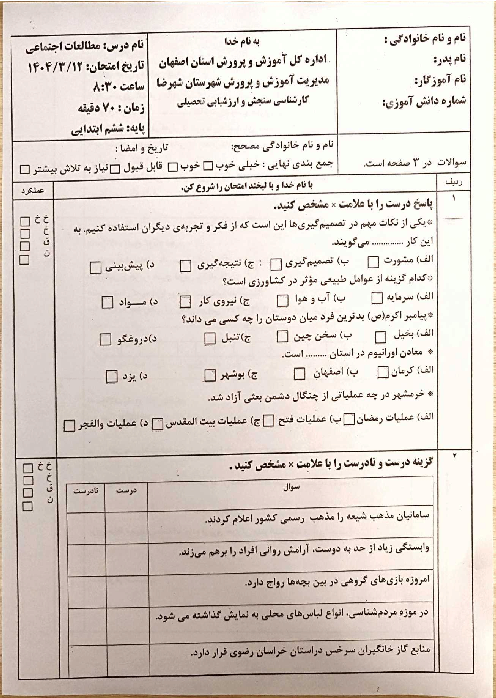 نام و نام خانوادگی :
نام پدر:
نام آموزگار:
شماره دانش آموزی:
به نام خدا
اداره کل آموزش و پرورش استان اصفهان
مدیریت آموزش و پرورش شهرستان شهرضا
کارشناسی سنجش و ارزشیابی تحصیلی
نام درس: مطالعات اجتماعی
تاریخ امتحان: ۱۴۰۴/۳/۱۲
ساعت ۸:۳۰
زمان : ۷۰ دقیقه
پایه: ششم ابتدایی
سوالات در ۳ صفحه است.
نام و نام خانوادگی مصحح: تاریخ و امضا :
جمع بندی نهایی : خیلی خوب خوب قابل قبول نیاز به تلاش بیشتر
ردیف
با نام خدا و با لبخند امتحان را شروع کن.
عملکرد
۱
پاسخ درست را با علامت × مشخص کنید.
*یکی از نکات مهم در تصمیم‌گیری‌ها این است که از فکر و تجربه‌ی دیگران استفاده کنیم. به
این کار .............. می‌گویند.
الف) مشورت ب) تصمیم‌گیری ج) نتیجه‌گیری د) پیش‌بینی
*کدام گزینه از عوامل طبیعی مؤثر در کشاورزی است؟
الف) سرمایه ب) آب و هوا ج) نیروی کار د) مـــواد
*پیامبر اکرم(ص) بدترین فرد میان دوستان را چه کسی می داند؟
الف) بخیل ب) سخن چین ج)تنبل د)دروغگو
* معادن اورانیوم در استان ......... است.
الف) کرمان ب) اصفهان ج) بوشهر د) یزد
* خرمشهر در چه عملیاتی از چنگال دشمن بعثی آزاد شد.
الف) عملیات رمضان ب) عملیات فتح ج) عملیات بیت المقدس د) عملیات والفجر
خ خ
خ
ق
ن
۲
گزینه درست و نادرست را با علامت × مشخص کنید .
سوال درست نادرست
سامانیان مذهب شیعه را مذهب رسمی کشور اعلام کردند.
وابستگی زیاد از حد به دوست، آرامش روانی افراد را برهم می‌زند.
امروزه بازی‌های گروهی در بین بچه‌ها رواج دارد.
در موزه مردم‌شناسی، انواع لباس‌های محلی به نمایش گذاشته می شود.
منابع گاز خانگیران سرخس دراستان خراسان رضوی قرار دارد.
خ خ
خ
ق
ن